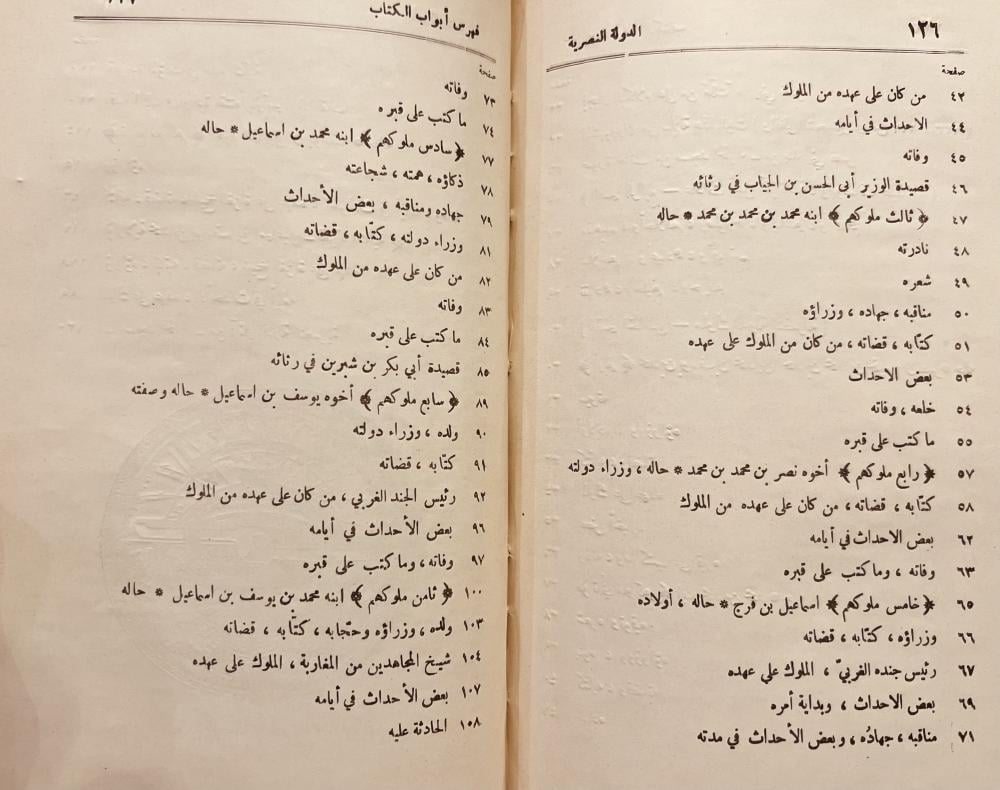 ١٢٦
الدولة النصرية
صفحة
٤٢ من كان على عهده من الملوك
٤٤ الاحداث في أيامه
٤٥ وفاته
٤٦ قصيدة الوزير أبي الحسن بن الجياب في رثائه
٤٧ ﴿ ثالث ملوكهم ﴾ ابنه محمد بن محمد بن محمد * حاله
٤٨ نادرته
٤٩ شعره
٥٠ مناقبه ، جهاده ، وزراؤه
٥١ كتّابه ، قضاته ، من كان من الملوك على عهده
٥٣ بعض الاحداث
٥٤ خلعه ، وفاته
٥٥ ما كتب على قبره
٥٧ ﴿ رابع ملوكهم ﴾ أخوه نصر بن محمد بن محمد * حاله ، وزراء دولته
٥٨ كتّابه ، قضاته ، من كان على عهده من الملوك
٦٢ بعض الاحداث في أيامه
٦٣ وفاته ، وما كتب على قبره
٦٥ ﴿ خامس ملوكهم ﴾ اسماعيل بن فرج * حاله ، أولاده
٦٦ وزراؤه ، كتّابه ، قضاته
٦٧ رئيس جنده الغربيّ ، الملوك على عهده
٦٩ بعض الاحداث ، وبداية أمره
٧١ مناقبه ، جهادُه ، وبعض الأحداث في مدته
فهرس أبواب الكتاب
صفحة
٧٣ وفاته
٧٤ ما كتب على قبره
٧٧ ﴿ سادس ملوكهم ﴾ ابنه محمد بن اسماعيل * حاله
٧٨ ذكاؤه ، همته ، شجاعته
٧٩ جهاده ومناقبه ، بعض الأحداث
٨١ وزراء دولته ، كتّابه ، قضاته
٨٢ من كان على عهده من الملوك
٨٣ وفاته
٨٤ ما كتب على قبره
٨٥ قصيدة أبي بكر بن شبرين في رثائه
٨٩ ﴿ سابع ملوكهم ﴾ أخوه يوسف بن اسماعيل * حاله وصفته
٩٠ ولده ، وزراء دولته
٩١ كتّابه ، قضاته
٩٢ رئيس الجند الغربي ، من كان على عهده من الملوك
٩٦ بعض الأحداث في أيامه
٩٧ وفاته ، وما كتب على قبره
١٠٠ ﴿ ثامن ملوكهم ﴾ ابنه محمد بن يوسف بن اسماعيل * حاله
١٠٣ ولده ، وزراؤه وحجّابه ، كتّابه ، قضاته
١٠٤ شيخ المجاهدين من المغاربة ، الملوك على عهده
١٠٧ بعض الأحداث في أيامه
١٠٨ الحادثة عليه